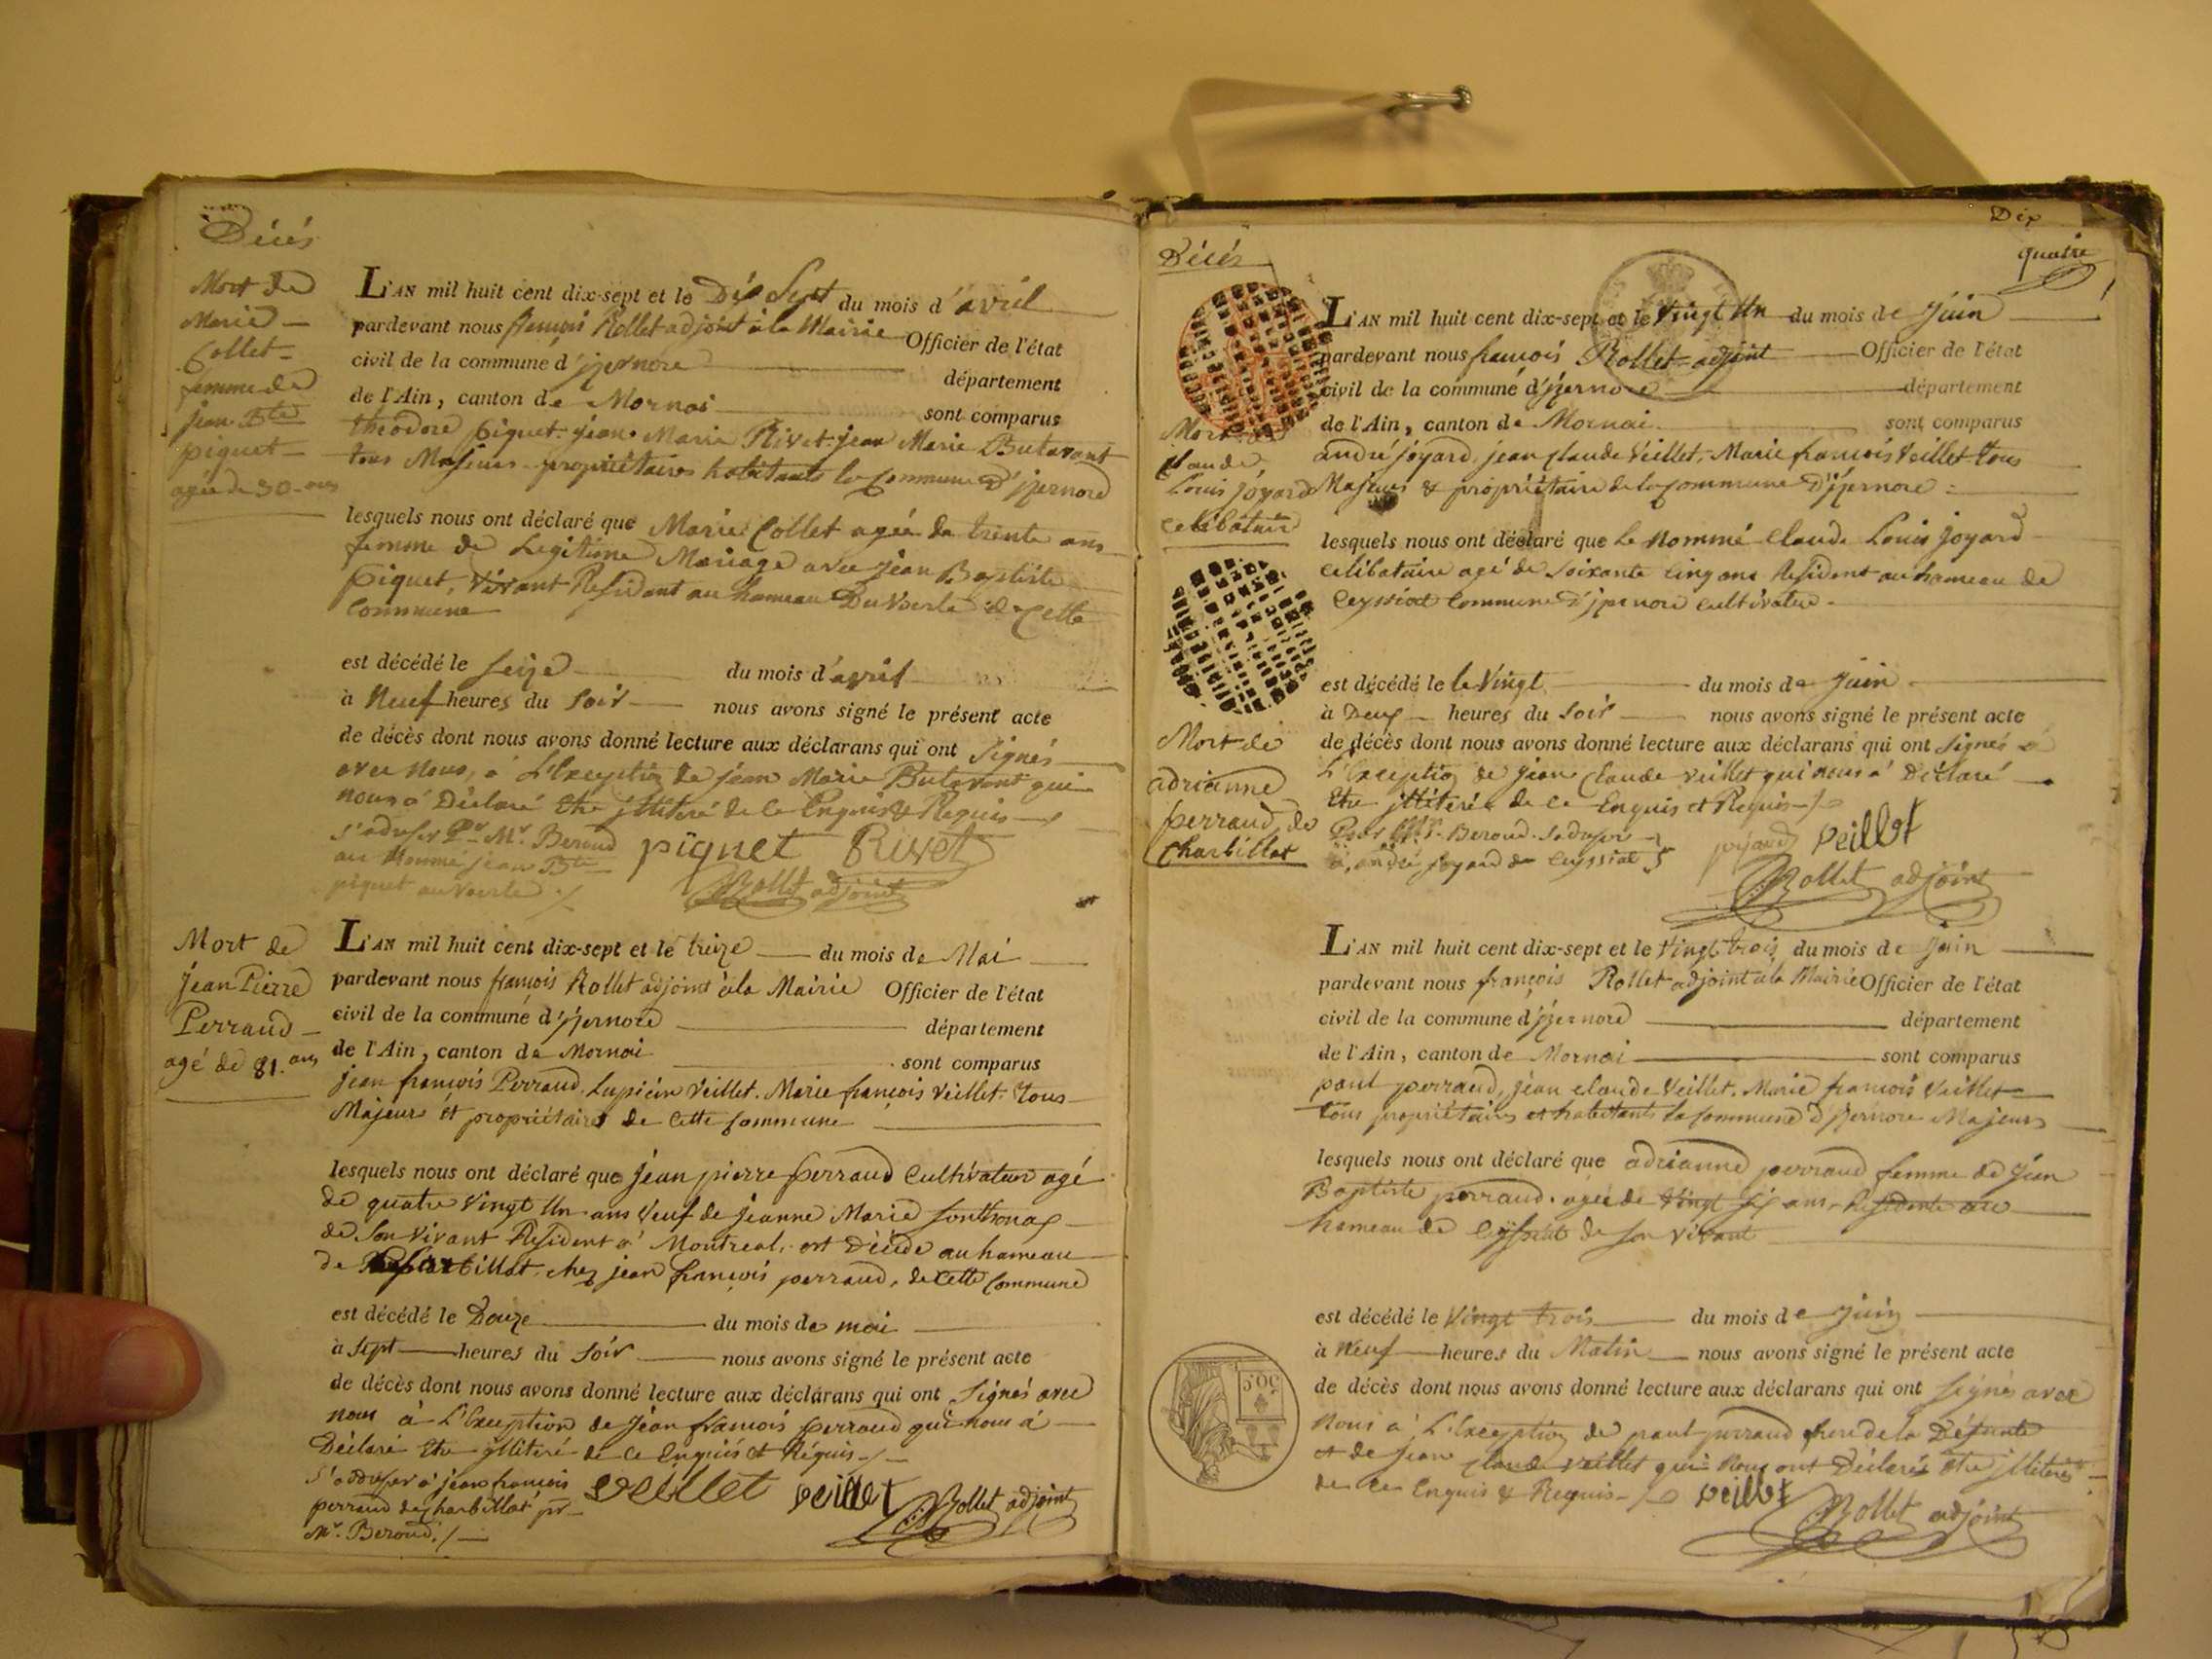 Décés
Mort de
Marie
Collet
femme de
jean Bte
piquet
agée de 30 ans
L'AN mil huit cent dix-sept et le Dix Sept du mois d'avril
pardevant nous françois Rollet adjoint à la Mairie Officier de l'état
civil de la commune d'jzernore département
de l'Ain, canton de Mornai sont comparus
théodore piquet. jean Marie Rivet. jean Marie Butavant
tous Majeurs propriétaires habitants la Commune D'jzernore
lesquels nous ont déclaré que Marie Collet agée de trente ans
femme de Legitime Mariage avec jean Baptiste
piquet, Vivant Résidant au hameau Du Voerle de Cette
Commune
est décédé le seize du mois d'avril
à Neuf heures du Soir nous avons signé le présent acte
de décès dont nous avons donné lecture aux déclarans qui ont Signés
avec nous, à L'Exception de jean Marie Butavant qui
nous à Déclaré Etre jllitéré de ce Enquis & Requis
S'adresser Pr. Mr. Beroud
au Nommé jean Bte
piquet au Voerle ./.
piquet Rivet
Rollet adjoint
Mort de
Jean Pierre
Perraud
agé de 81 ans
L'AN mil huit cent dix-sept et le treize du mois de Mai
pardevant nous françois Rollet adjoint à la Mairie Officier de l'état
civil de la commune d'jzernore département
de l'Ain, canton de Mornai sont comparus
jean françois Perraud. Lupicin Veillet. Marie françois Veillet. Tous
Majeurs et propriétaires de Cette Commune
lesquels nous ont déclaré que jean pierre perraud Cultivateur agé
de quatre Vingt Un ans Veuf de jeanne Marie Sonthonax
de Son Vivant Résident à Montreal, est Décédé au hameau
de Charbillat, chez jean françois perraud, de Cette Commune
est décédé le Douze du mois de mai
à Sept heures du Soir nous avons signé le présent acte
de décès dont nous avons donné lecture aux déclarans qui ont Signés avec
nous à L'Exception de jean françois perraud qui nous à
Déclaré Etre jlliteré de ce Enquis et Réquis
S'addresser à jean françois
perraud de charbillat pr.
Mr. Beroud ./.
veillet veillet Rollet adjoint
Dix
quatre
Décés
Mort de
Claude
Louis joyard
Celibataire
L'AN mil huit cent dix-sept et le Vingt Un du mois de Juin
pardevant nous françois Rollet adjoint Officier de l'état
civil de la commune d'jzernore département
de l'Ain, canton de Mornai sont comparus
andré joyard, jean claude Veillet, Marie françois Veillet tous
Majeurs & propriétaire de la Commune D'jzernore
lesquels nous ont déclaré que Le Nommé Claude Louis joyard
Celibataire agé de Soixante Cinq ans Résident au hameau de
Ceyssiat Commune d'jzernore Cultivateur
est décédé le le Vingt du mois de Juin
à Deux heures du Soir nous avons signé le présent acte
de décès dont nous avons donné lecture aux déclarans qui ont Signés à
L'Exception de jean Claude Veillet qui nous à Déclaré
Etre jllitéré de ce Enquis et Requis
Pour Mr. Beroud. S'adresser
à andré joyard de Ceyssiat
joyard veillet
Rollet adjoint
Mort de
adrianne
perraud de
Charbillat
L'AN mil huit cent dix-sept et le Vingt trois du mois de Juin
pardevant nous françois Rollet adjoint à la Mairie Officier de l'état
civil de la commune d'jzernore département
de l'Ain, canton de Mornai sont comparus
paul perraud, jean claude Veillet. Marie françois Veillet
tous propriétaires et habitants la Commune d'jzernore Majeurs
lesquels nous ont déclaré que adrianne perraud femme de jean
Baptiste perraud. agée de Vingt Six ans, Résidente au
hameau de Ceyssiat de Son Vivant
est décédé le Vingt trois du mois de Juin
à Neuf heures du Matin nous avons signé le présent acte
de décès dont nous avons donné lecture aux déclarans qui ont Signés avec
nous à L'Exception de paul perraud frere de la Défunte
et de jean Claude Veillet qui Nous ont Déclarés Etre jlliterés
de ce Enquis & Requis veillet
Rollet adjoint